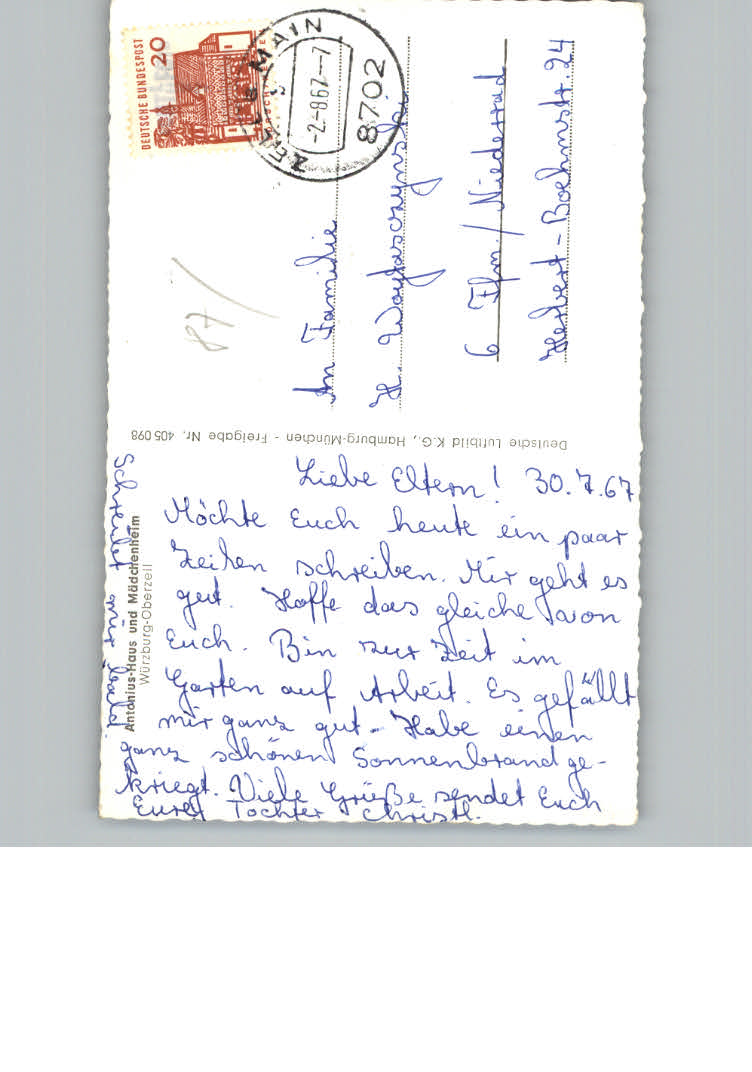 Liebe Eltern! 30.7.67
Möchte Euch heute ein paar
Zeilen schreiben. Mir geht es
gut. Hoffe das gleiche von
Euch. Bin zur Zeit im
Garten auf Arbeit. Es gefällt
mir ganz gut - Habe einen
ganz schönen Sonnenbrand ge-
kriegt. Viele Grüße sendet Euch
Eure Tochter Christl.
Schreibet mir bald.
Antonius-Haus und Mädchenheim
Würzburg-Oberzell
Deutsche Luftbild K.G., Hamburg-München - Freigabe Nr. 405 098
An Familie
H.
6 Ffm./Niederrad
Herbert-Boehmstr. 24
87/
DEUTSCHE BUNDESPOST
20
ZELL MAIN
-2-8.67--7
8702